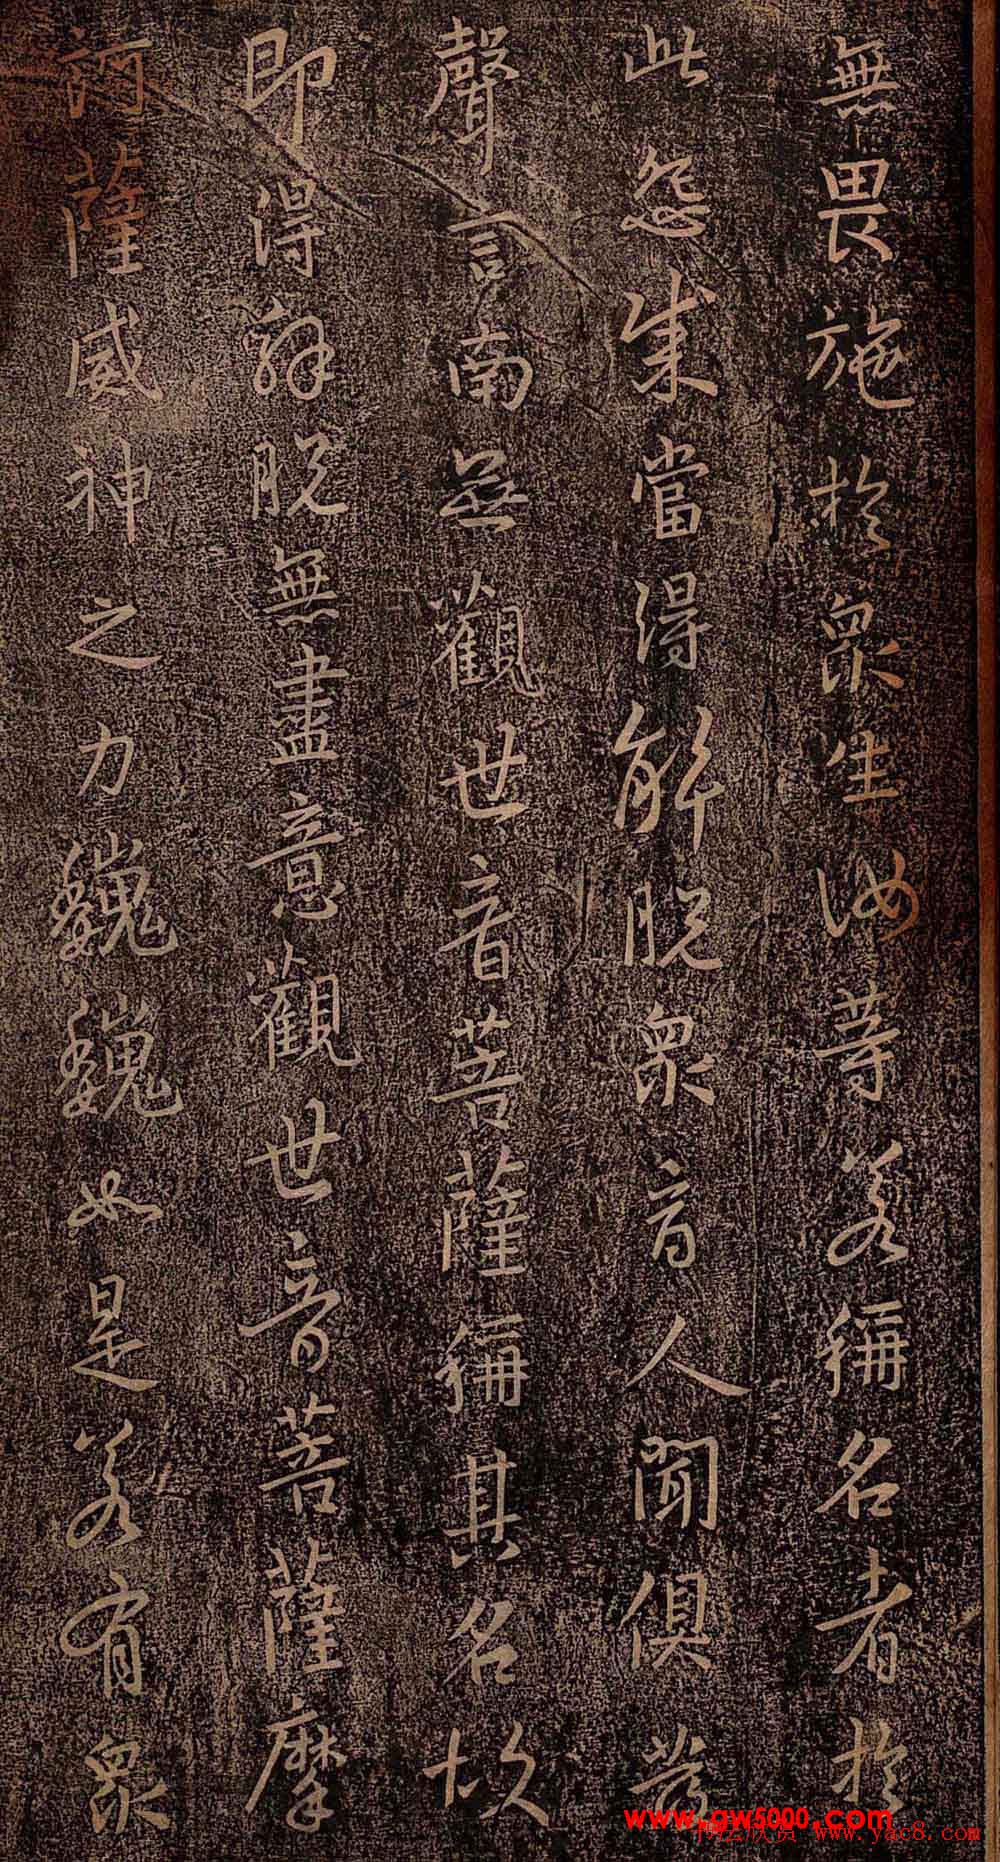 無畏施於衆生汝等若稱名者於
此怨賊當得解脫衆商人聞俱發
聲言南無觀世音菩薩稱其名故
即得解脫無盡意觀世音菩薩摩
訶薩威神之力巍巍如是若有衆
www.gw5000.com
书法欣赏 www.yac8.com